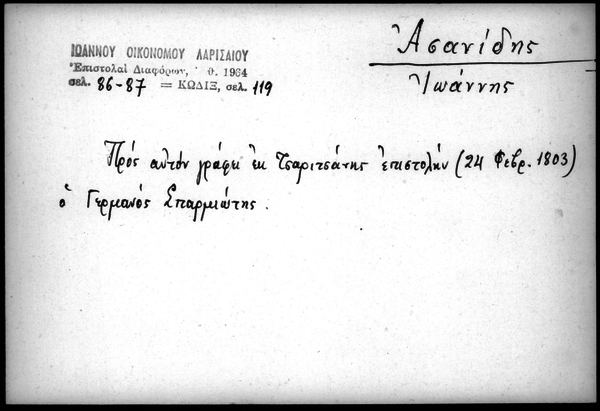 ΙΩΑΝΝΟΥ ΟΙΚΟΝΟΜΟΥ ΛΑΡΙΣΑΙΟΥ
Ἐπιστολαὶ Διαφόρων, Ἀ. 1964
σελ. 86-87 = ΚΩΔΙΞ, σελ. 119
Ἀσανίδης
Ἰωάννης
Πρός αὐτόν γράφει ἐκ Τσαριτσάνης ἐπιστολήν (24 Φεβρ. 1803)
ὁ Γερμανός Σπαρμιώτης.